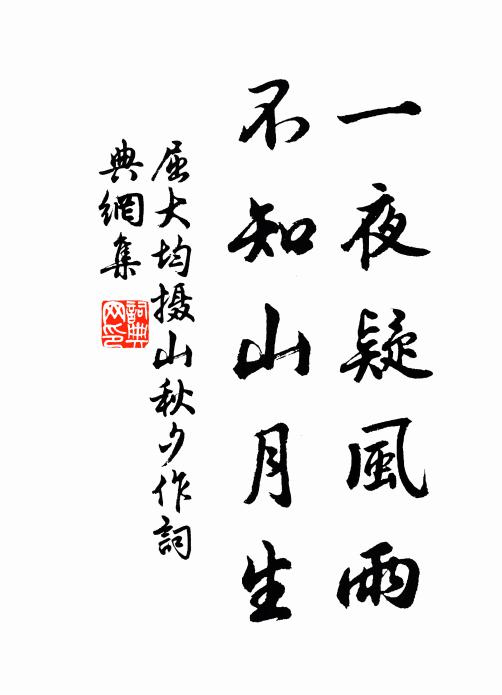 一夜疑風雨
不知山月生
屈大均摄山秋夕作詞
典網集
詞典
网印